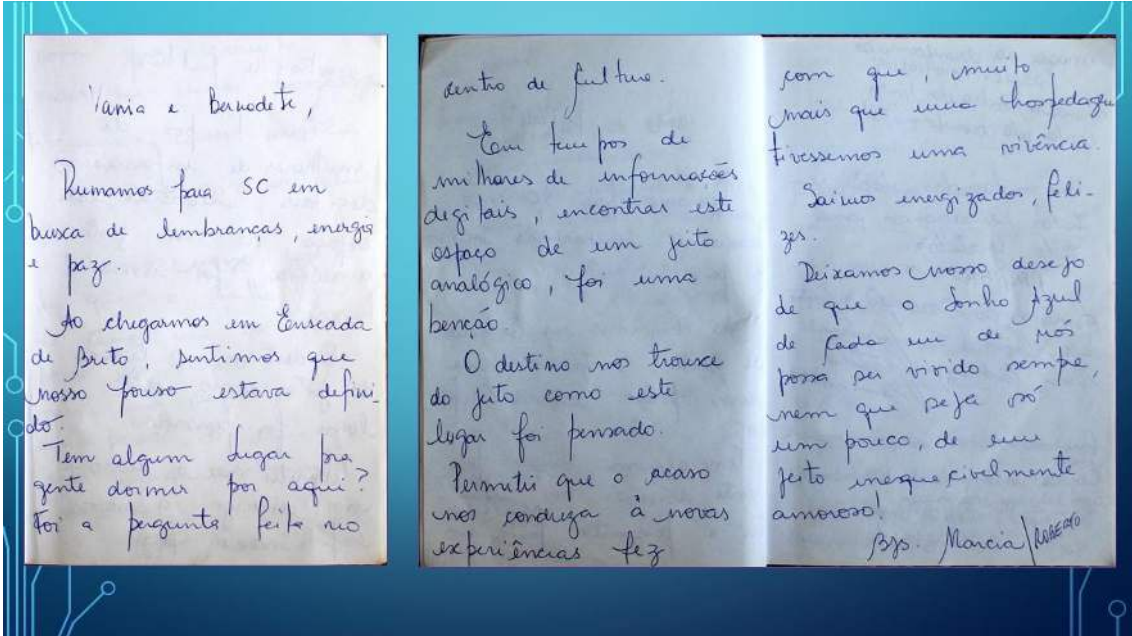 Vania e Bernadete,
Rumamos para SC em
busca de lembranças, energia
e paz.
Ao chegarmos em Enseada
de Brito, sentimos que
nosso pouso estava defini-
do.
Tem algum lugar pra
gente dormir por aqui?
Foi a pergunta feita no
centro de Cultura.
Em tempos de
milhares de informações
digitais, encontrar este
espaço de um jeito
analógico, foi uma
benção.
O destino nos trouxe
do jeito como este
lugar foi pensado.
Permitir que o acaso
nos conduza à novas
experiências fez
com que, muito
mais que uma hospedagem
tivessemos uma vivência.
Saimos energizados, feli-
zes.
Deixamos nosso desejo
de que o Sonho Azul
de cada um de nós
possa ser vivido sempre,
nem que seja só
um pouco, de um
jeito inesquecivelmente
amoroso!
Bjs. Marcia/ROBERTO